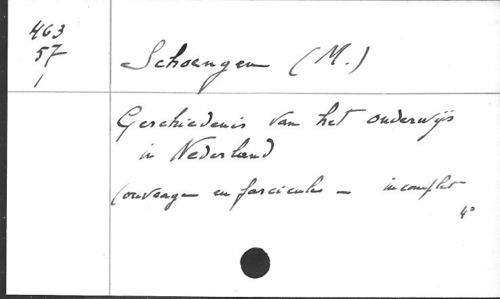 463
57
1
Schoengen (M.)
Geschiedenis van het onderwijs
in Nederland
(ouvrage en fascicules – incomplet
4°